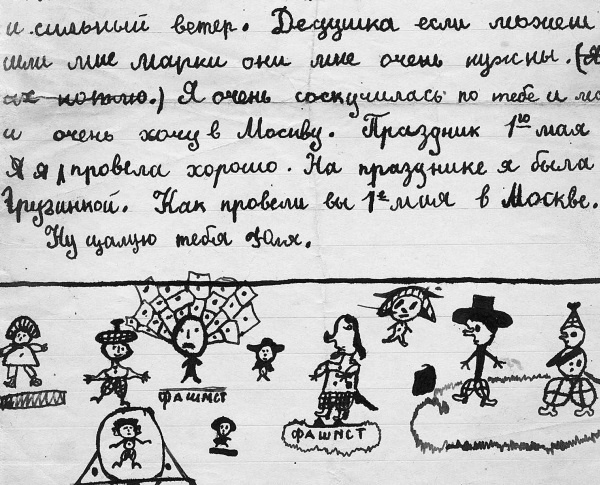 и сильный ветер. Дедушка если можеш
шли мне марки они мне очень нужны. (Я
их коплю.) Я очень соскучилась по тебе и
и очень хочу в Москву. Праздник 1го мая
Я провела хорошо. На празднике я была
Грузинкой. Как провели вы 1е мая в Москве.
Ну цалую тебя Юля.
ФАШИСТ
ФАШИСТ